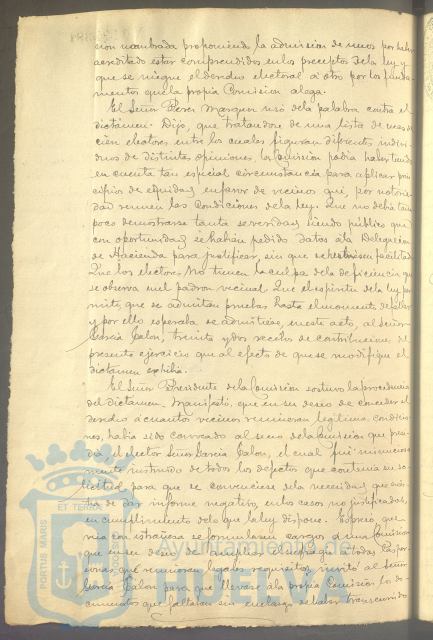 sion nombrada proponiendo la admisión de unos por haber
acreditado estar comprendidos en los preceptos de la ley y
que se niegue el derecho electoral á otros por los funda-
mentos que la propia Comisión alega.
El Señor Perez Marquez usó de la palabra contra el
dictámen. Dijo, que tratandose de una lista de mas de
cien electores entre los cuales figuran diferentes indivi-
duos de distintas opiniones, la Comisión podia haber tenido
en cuenta tan especial circunstancia para aplicar prin-
cipios de equidad en favor de vecinos que, por notorie-
dad reunen las condiciones de la ley. Que no debia tam-
poco demostrarse tanta severidad, siendo público que
con oportunidad se habian pedido datos á la Delegacion
de Hacienda para justificar, sin que se hubiesen facilitado.
Que los electores no tienen la culpa de la deficiencia que
se observa en el padron vecinal. Que el espiritu de la ley per-
mite, que se admitan pruebas hasta el momento
y por ello esperaba se admitiese, en este acto, al Señor
Garcia Jalon, treinta y dos recibos de contribucion del
presente ejercicio que al efecto de que se modifique el
dictámen exhibia.
El Señor Presidente de la Comisión sostuvo la procedencia
del dictamen. Manifestó, que en su deseo de conceder el
derecho á cuantos vecinos reunieran legitimas condicio-
nes, habia sido convocado al seno de la Comisión que presi-
dia, el elector Señor Garcia Jalon, el cual fué minuciosa-
mente instruido de todos los defectos que contenia su so-
licitud, para que se convenciese de la necesidad que
de dar informe negativo, en los casos no justificados,
en cumplimiento de lo que la ley dispone. Expresó, que
veia con estrañeza se formularan cargos á una Comision
que en su deseo de ampliar el sufragio á todas las per-
sonas que reunieran legales requisitos, invitó al Señor
Garcia Jalon para que llevase á la propia Comisión los do-
cumentos que faltaran sin embargo de haber transcurrido
PORTUS MARIS
ET TERRAE
Ayuntamiento de
HUELVA